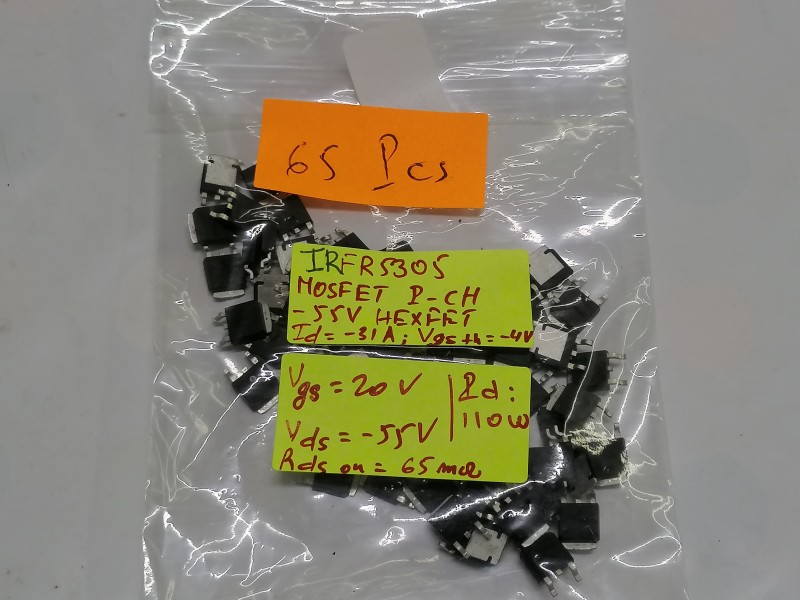 65 Pcs
IRFR5305
MOSFET P-CH
-55V HEXFET
Id = -31A; Vgs th = -4V
Vgs = 20 V | Pd:
110W
Vds = -55V
Rds on = 65 mΩ